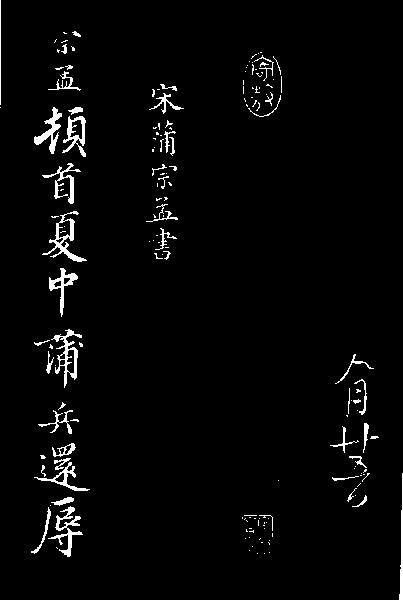 八月廿五日
宋蒲宗孟書
宗孟頓首夏中蒲兵還辱